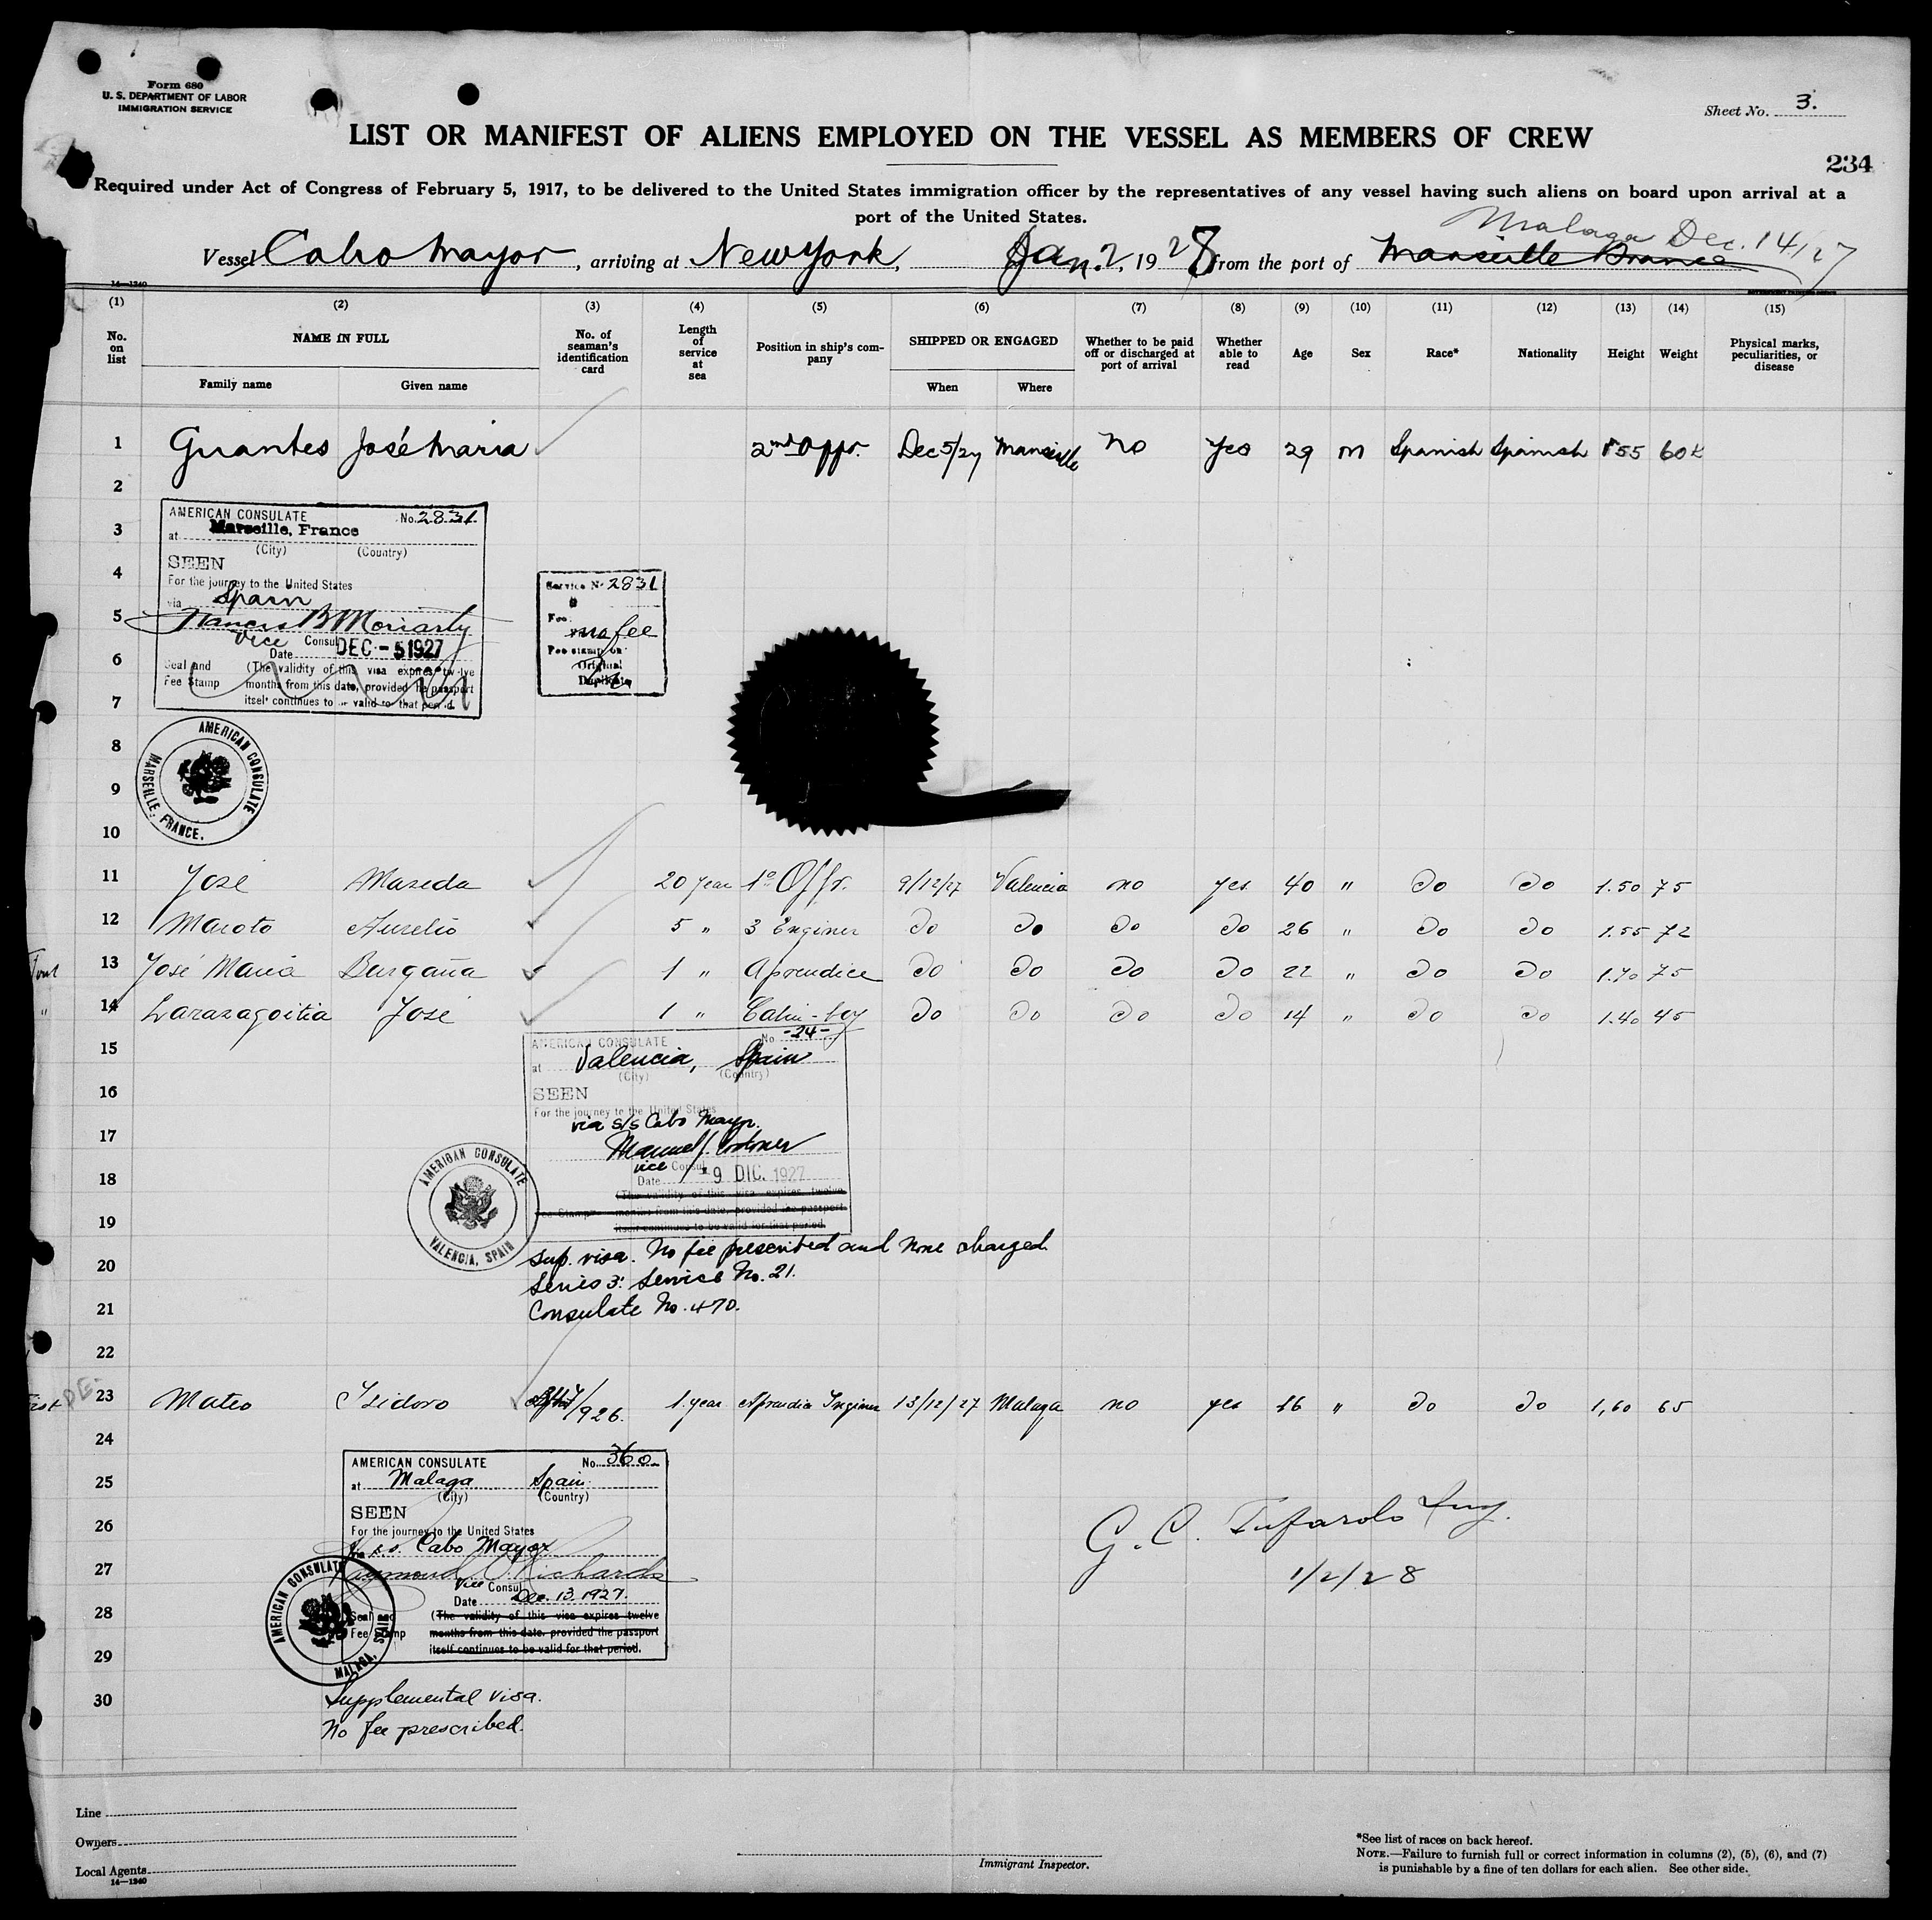 Form 680
U. S. DEPARTMENT OF LABOR
IMMIGRATION SERVICE
Sheet No. 3.
LIST OR MANIFEST OF ALIENS EMPLOYED ON THE VESSEL AS MEMBERS OF CREW
234
Required under Act of Congress of February 5, 1917, to be delivered to the United States immigration officer by the representatives of any vessel having such aliens on board upon arrival at a
port of the United States.
Malaga Dec. 14/27
Vessel Cabo Mayor, arriving at New York, Jan. 2, 1928 from the port of Marseille France
14—1240
(1) (2) (3) (4) (5) (6) (7) (8) (9) (10) (11) (12) (13) (14) (15)
No. on list
NAME IN FULL
Family name Given name
No. of seaman's identification card
Length of service at sea
Position in ship's company
SHIPPED OR ENGAGED
When Where
Whether to be paid off or discharged at port of arrival
Whether able to read
Age
Sex
Race*
Nationality
Height
Weight
Physical marks, peculiarities, or disease
1 Guantes José Maria 2nd Dec 5/27 Marseille no Yes 29 M Spanish Spanish 155 60k
2
AMERICAN CONSULATE No. 2831
3
at Marseille, France
(City) (Country)
SEEN
4
For the journey to the United States
via Spain
5
Francis B Moriarty
Vice Consul
Date DEC - 5 1927
6
Seal and Fee Stamp
(The validity of this visa expires twelve
months from this date, provided he passport
itself continues to be valid for that period.
7
Service No 2831
Fee
no fee
Fee stamp on
Original
Duplicate
8
AMERICAN CONSULATE
MARSEILLE, FRANCE.
9
10
11 José Maseda 20 year 1º Offr. 9/12/27 Valencia no yes 40 " Do Do 1.50 75
12 Maroto Aurelio 5 " 3 Enginer Do Do Do Do 26 " Do Do 1.55 72
13 José Maria Bargaña 1 " Aprendice Do Do Do Do 22 " Do Do 1.70 75
" 14 Larazagoitia José 1 " Cabin-boy Do Do Do Do 14 " Do Do 1.40 45
15
AMERICAN CONSULATE No -24-
at Valencia, Spain
(City) (Country)
16
SEEN
For the journey to the United States
17
via s/s Cabo Mayor.
Manuel J. Codoner
vice Consul
18
Date 9 DIC. 1927
(The validity of this visa expires twelve
19
Fee Stamp months from this date, provided the passport
itself continues to be valid for that period.
AMERICAN CONSULATE
VALENCIA, SPAIN
20
Sup. visa. No fee prescribed and none charged.
Series 3: Service No. 21.
21
Consulate No. 470.
22
23 Mateo Isidoro /926. 1 year Aprendice Inginer 13/12/27 Malaga no yes 16 " Do Do 1,60 65
24
AMERICAN CONSULATE No. 360
25
at Malaga Spain
(City) (Country)
SEEN
26
For the journey to the United States
via s.s. Cabo Mayor
27
Raymond O. Richards
Vice Consul
Date Dec. 13. 1927.
28
Seal and Fee Stamp
(The validity of this visa expires twelve
months from this date, provided the passport
itself continues to be valid for that period.
29
AMERICAN CONSULATE
MALAGA, SPAIN
30
Supplemental visa.
No fee prescribed.
G. C. Tufarolo
1/2/28
Line
Owners
Local Agents
14—1240
Immigrant Inspector.
*See list of races on back hereof.
NOTE.—Failure to furnish full or correct information in columns (2), (5), (6), and (7)
is punishable by a fine of ten dollars for each alien. See other side.